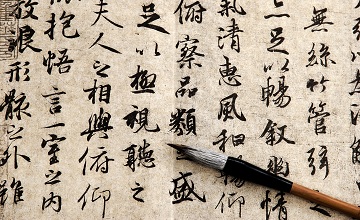 無絲竹管弦之
亦足以暢敘幽情
氣清惠風和暢仰
俯察品類之盛
足以極視聽之
夫人之相與俯仰
抱悟言一室之內
放浪形骸之外雖